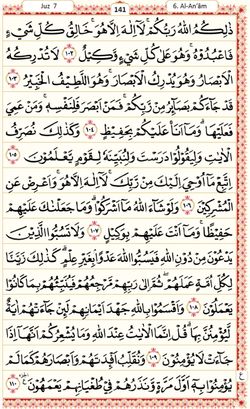 Juz 7
141
6. Al-An'âm
ذٰلِكُمُ اللّٰهُ رَبُّكُمْ ۚ لَآ اِلٰهَ اِلَّا هُوَ ۚ خَالِقُ كُلِّ شَيْءٍ
فَاعْبُدُوْهُ ۚ وَهُوَ عَلٰى كُلِّ شَيْءٍ وَّكِيْلٌ ١٠٢ لَا تُدْرِكُهُ
الْاَبْصَارُ وَهُوَ يُدْرِكُ الْاَبْصَارَ ۚ وَهُوَ اللَّطِيْفُ الْخَبِيْرُ ١٠٣
قَدْ جَآءَكُمْ بَصَآئِرُ مِنْ رَّبِّكُمْ ۚ فَمَنْ اَبْصَرَ فَلِنَفْسِهٖ ۚ وَمَنْ عَمِيَ
فَعَلَيْهَا ۗ وَمَآ اَنَا۠ عَلَيْكُمْ بِحَفِيْظٍ ١٠٤ وَكَذٰلِكَ نُصَرِّفُ
الْاٰيٰتِ وَلِيَقُوْلُوْا دَرَسْتَ وَلِنُبَيِّنَهٗ لِقَوْمٍ يَّعْلَمُوْنَ ١٠٥
اِتَّبِعْ مَآ اُوْحِيَ اِلَيْكَ مِنْ رَّبِّكَ ۚ لَآ اِلٰهَ اِلَّا هُوَ ۚ وَاَعْرِضْ عَنِ
الْمُشْرِكِيْنَ ١٠٦ وَلَوْ شَآءَ اللّٰهُ مَآ اَشْرَكُوْا ۗ وَمَا جَعَلْنٰكَ عَلَيْهِمْ
حَفِيْظًا ۚ وَمَآ اَنْتَ عَلَيْهِمْ بِوَكِيْلٍ ١٠٧ وَلَا تَسُبُّوا الَّذِيْنَ
يَدْعُوْنَ مِنْ دُوْنِ اللّٰهِ فَيَسُبُّوا اللّٰهَ عَدْوًا بِغَيْرِ عِلْمٍ ۗ كَذٰلِكَ زَيَّنَّا
لِكُلِّ اُمَّةٍ عَمَلَهُمْ ۖ ثُمَّ اِلٰى رَبِّهِمْ مَّرْجِعُهُمْ فَيُنَبِّئُهُمْ بِمَا كَانُوْا
يَعْمَلُوْنَ ١٠٨ وَاَقْسَمُوْا بِاللّٰهِ جَهْدَ اَيْمَانِهِمْ لَئِنْ جَآءَتْهُمْ اٰيَةٌ
لَّيُؤْمِنُنَّ بِهَا ۗ قُلْ اِنَّمَا الْاٰيٰتُ عِنْدَ اللّٰهِ وَمَا يُشْعِرُكُمْ ۙ اَنَّهَآ اِذَا
جَآءَتْ لَا يُؤْمِنُوْنَ ١٠٩ وَنُقَلِّبُ اَفْـِٕدَتَهُمْ وَاَبْصَارَهُمْ كَمَا لَمْ
يُؤْمِنُوْا بِهٖٓ اَوَّلَ مَرَّةٍ وَّنَذَرُهُمْ فِيْ طُغْيَانِهِمْ يَعْمَهُوْنَ ١١٠